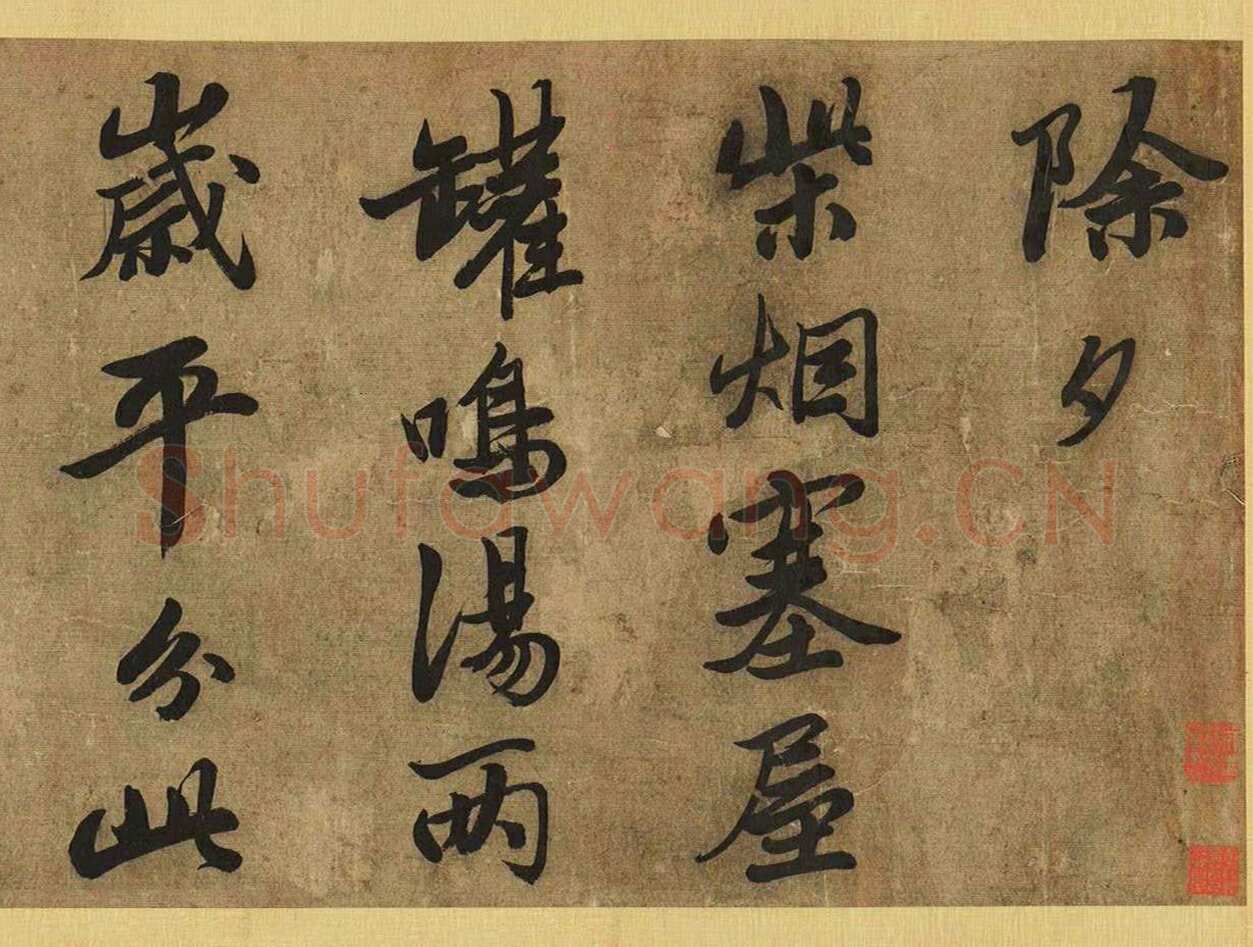 除夕
柴烟塞屋
罐鳴湯两
歳平分此
Shufawang.CN